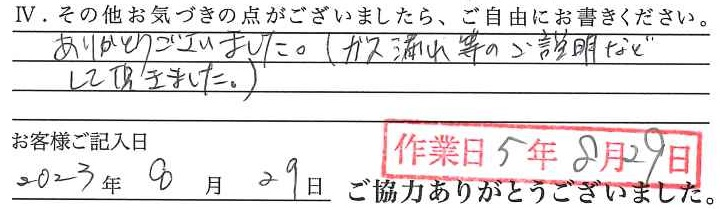 Ⅳ．その他お気づきの点がございましたら、ご自由にお書きください。
ありがとうございました。(ガス漏れ等のご説明など
して頂きました。)
お客様ご記入日
作業日 5年 8月29日
2023年 8月 29日
ご協力ありがとうございました。